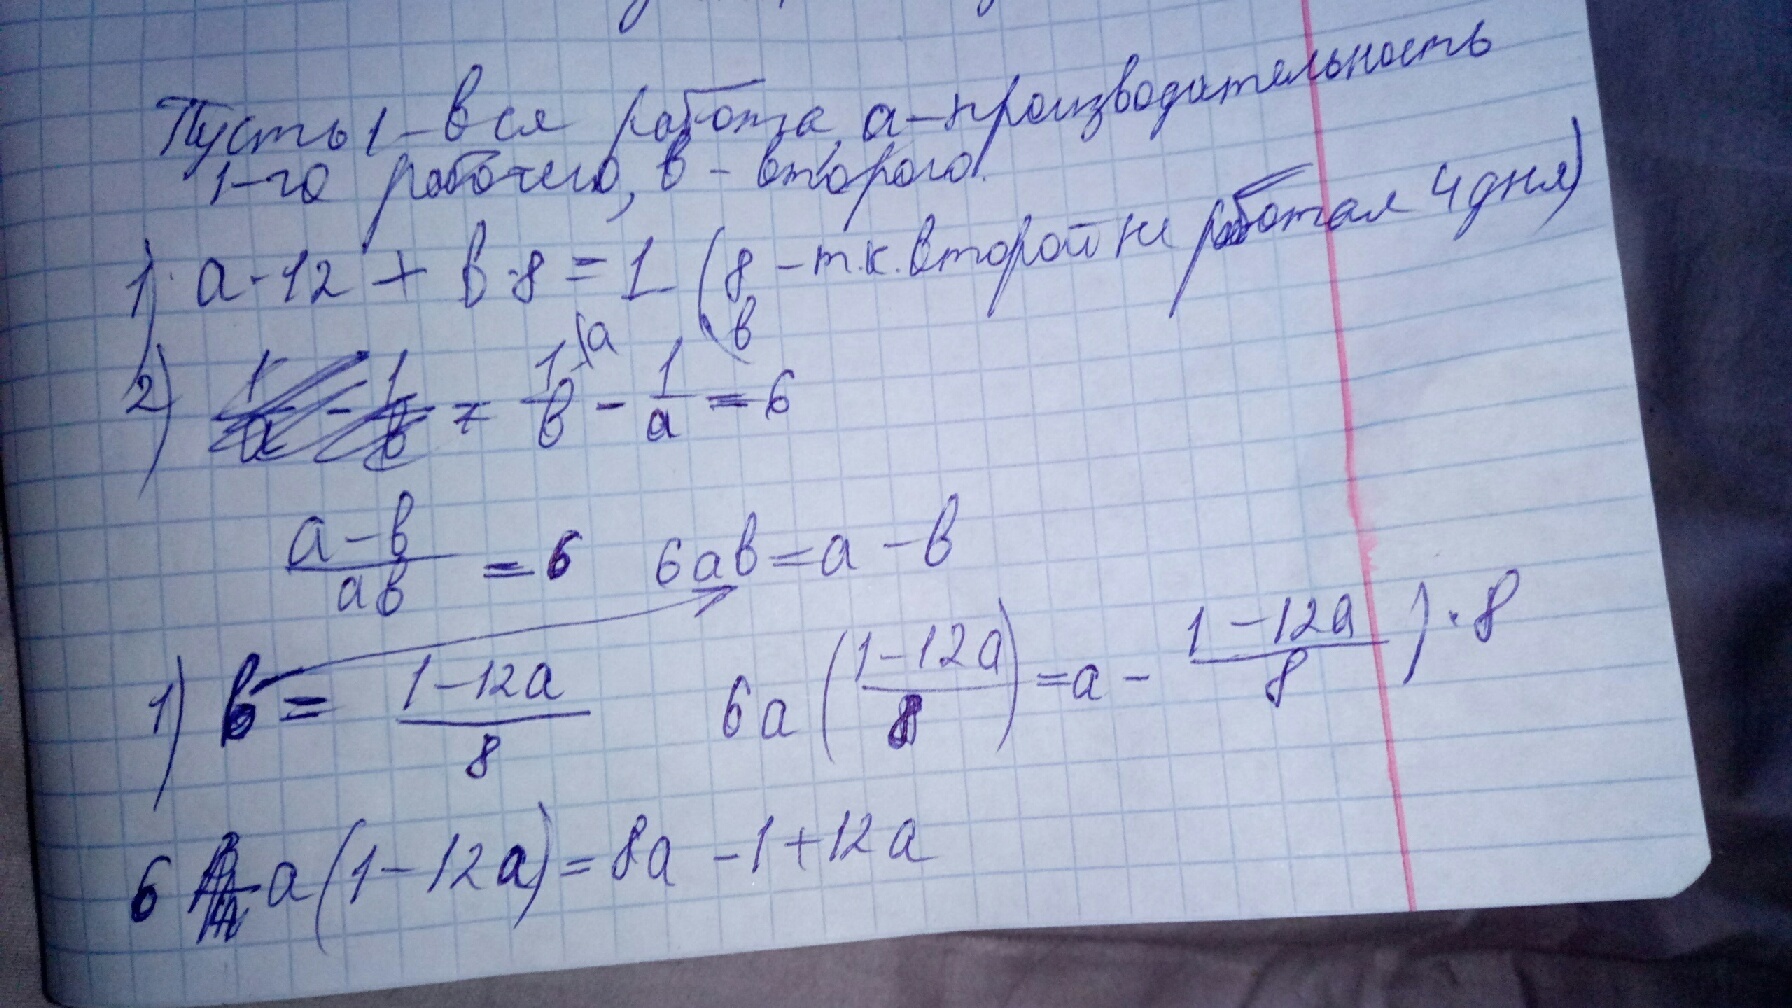 Пусть 1 - вся работа, а - производительность
1-го рабочего, в - второго.
1) а·12 + в·8 = 1 (8 - т.к. второй не работал 4 дня)
2) 1/в - 1/а = 6
(а-в)/ав = 6 6ав = а - в
1) в = (1-12а)/8 6а((1-12а)/8) = а - (1-12а)/8) · 8
6 а(1-12а) = 8а - 1 + 12а